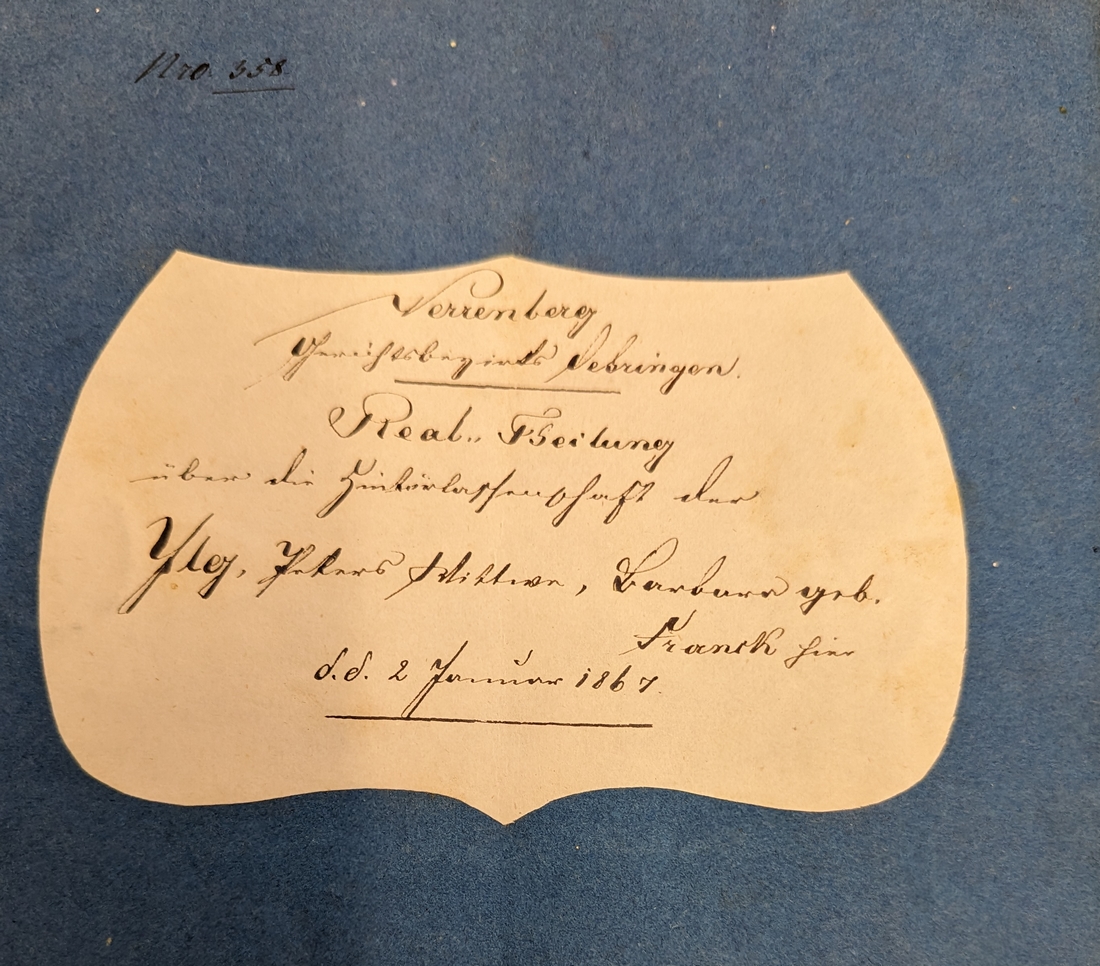 Nro. 358
Verrenberg
Gerichtsbezirks Oehringen.
Real-Theilung
über die Hinterlassenschaft der
Ylg, Peters Wittwe, Barbara geb.
Franck hier
d.d. 2 Januar 1867.